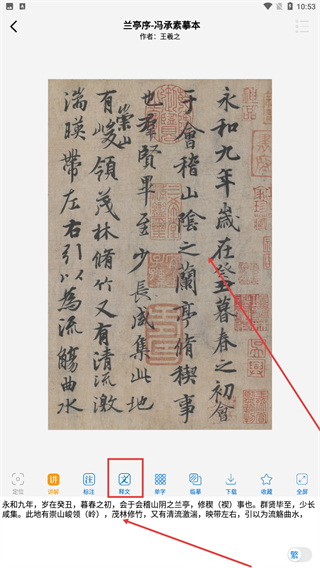 10:53
兰亭序-冯承素摹本
作者：王羲之
永和九年歲在癸丑暮春之初會
于會稽山陰之蘭亭脩稧事
也群賢畢至少長咸集此地
有崇山峻領茂林脩竹又有清流激
湍暎帶左右引以為流觴曲水
定位 讲解 标注 释文 单字 临摹 下载 收藏 全屏
讲 注 文
永和九年，岁在癸丑，暮春之初，会于会稽山阴之兰亭，修稧（禊）事也。群贤毕至，少长
咸集。此地有崇山峻领（岭），茂林修竹，又有清流激湍，映带左右，引以为流觞曲水，
繁